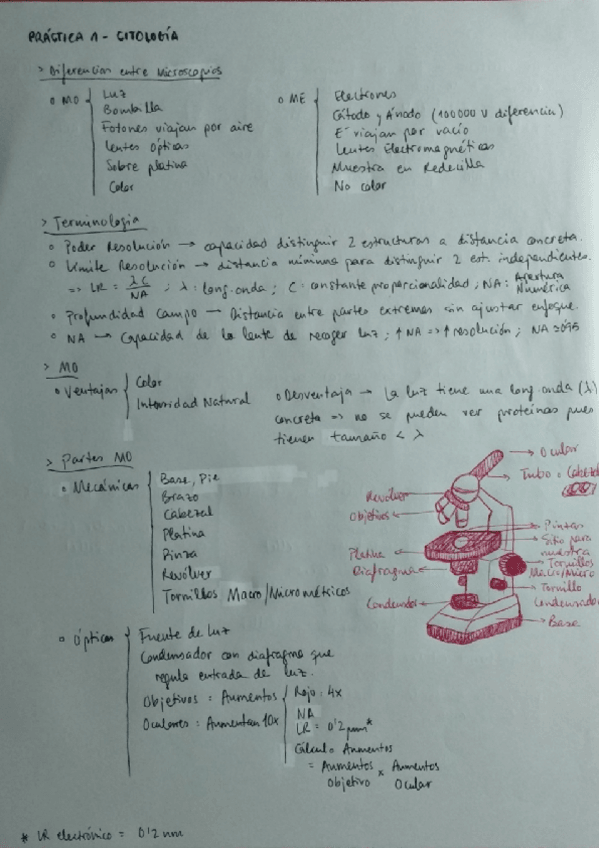 PRÁCTICA 1 - CITOLOGÍA
> Diferencias entre Microscopios
o MO
Luz
Bombilla
Fotones viajan por aire
Lentes Ópticas
Sobre platina
Color
o ME
Electrones
Cátodo y Ánodo (100000 V diferencia)
E⁻ viajan por vacío
Lentes Electromagnéticas
Muestra en Redecilla
No color
> Terminología
o Poder Resolución → capacidad distinguir 2 estructuras a distancia concreta.
o Límite Resolución → distancia mínima para distinguir 2 est. independientes.
=> LR = λC/NA ; λ: long. onda ; C = constante proporcionalidad ; NA: Apertura Numérica
o Profundidad campo → Distancia entre partes extremas sin ajustar enfoque.
o NA → Capacidad de la lente de recoger luz ; ↑NA => ↑resolución ; NA
> MO
o Ventajas
Color
Intensidad Natural
o Desventaja → La luz tiene una long. onda (λ)
concreta => no se pueden ver proteínas pues
tienen tamaño < λ
> Partes MO
o Mecánicas
Base, Pie
Brazo
Cabezal
Platina
Pinza
Revólver
Tornillos Macro/Micrométricos
Ocular
Tubo o Cabezal
Revólver
Objetivos
Pinzas
Sitio para
muestra
Platina
Diafragma
Tornillos
Macro/Micro
Tornillo
Condensador
Condensador
Base
o Ópticas
Fuente de luz
Condensador con diafragma que
regula entrada de luz.
Objetivos = Aumentos
Oculares : Aumentan 10x
Rojo : 4x
NA
LR = 0'2 µm*
Cálculo Aumentos
= Aumentos Objetivo x Aumentos Ocular
* LR electrónico = 0'2 nm